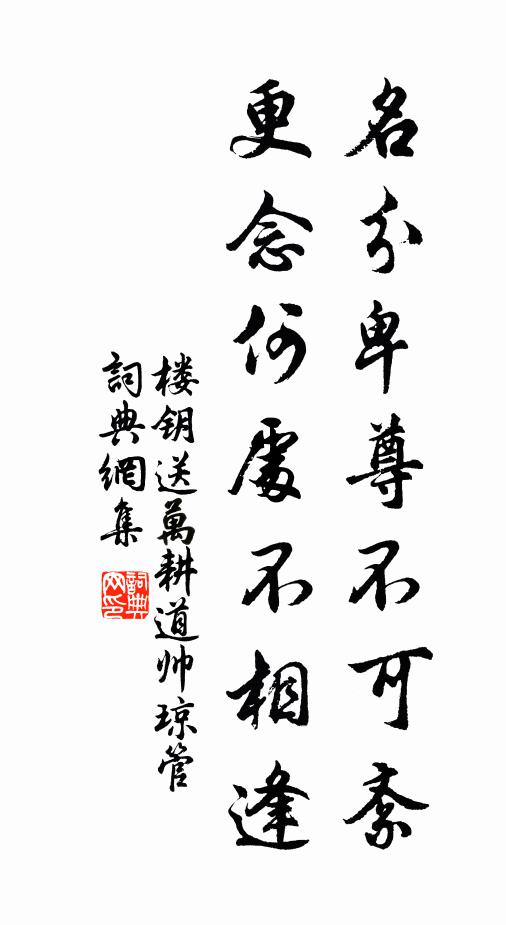 名分卑尊不可紊
更念何處不相逢
楼钥送萬耕道帅琼管
詞典網集
詞典网印